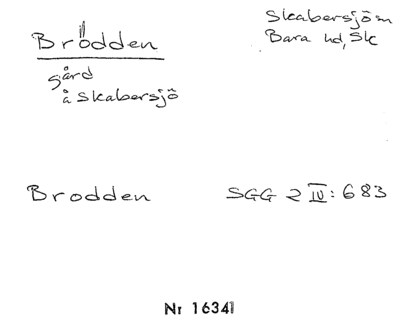 Brödden
Skabersjö sn
Bara hd, Sk
gård
å Skabersjö
Brodden
SGG 2 IV: 683
Nr 16341